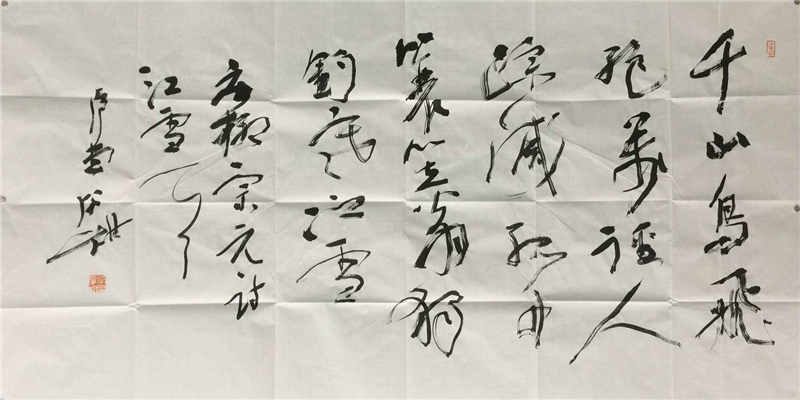 千山鳥飛
絕萬徑人
踪滅孤舟
蓑笠翁獨
釣寒江雪
右柳宗元詩
江雪